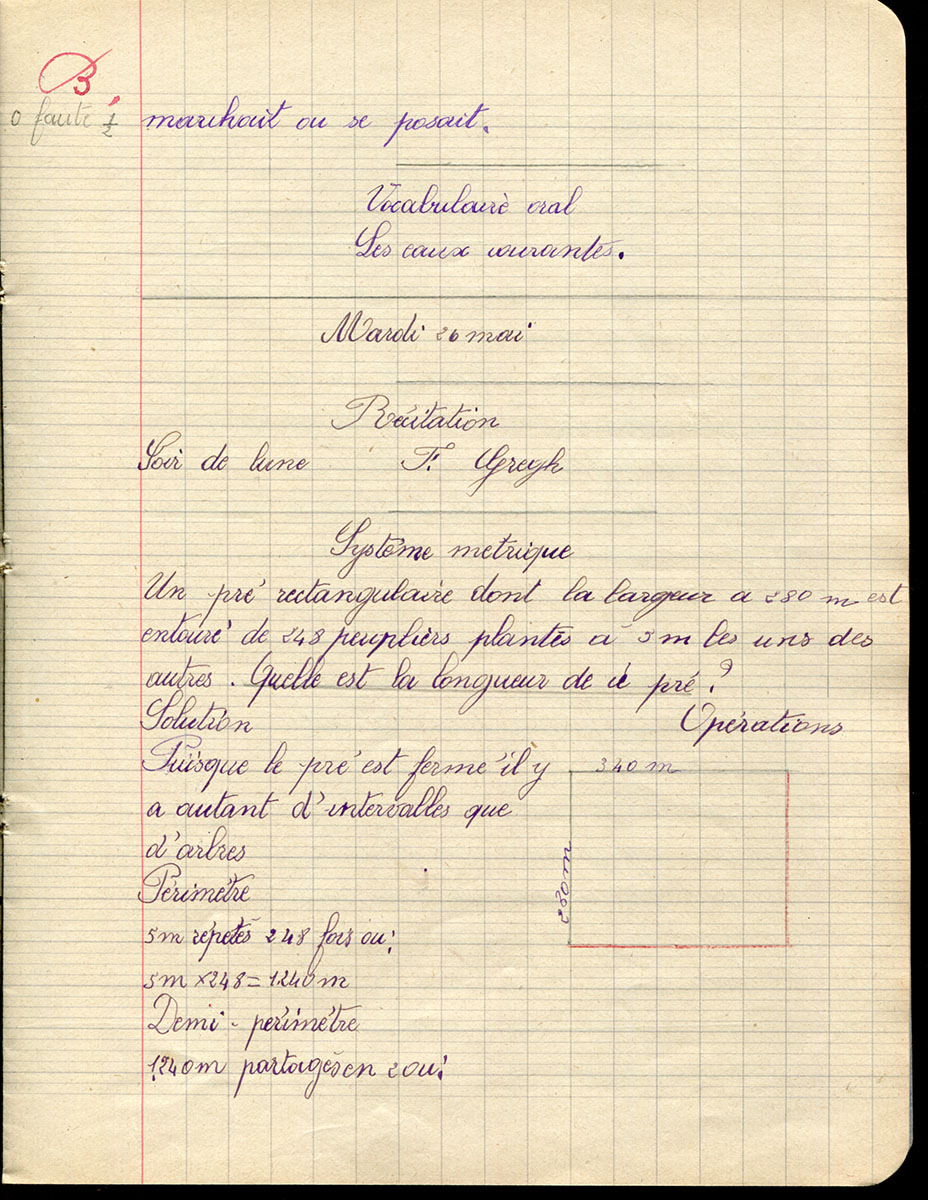 B
0 faute 1/2
marchait ou se posait.
Vocabulaire oral
Les eaux courantes.
Mardi 26 mai
Récitation
Soir de lune F. Gregh
Système metrique
Un pré rectangulaire dont la largeur a 280 m est
entouré de 248 peupliers plantés à 5 m les uns des
autres. Quelle est la longueur de ce pré ?
Solution Opérations
Puisque le pré est fermé il y
a autant d'intervalles que
d'arbres
340 m
280m
Périmètre
5m répétés 248 fois ou:
5m x 248 = 1240m
Demi-périmètre
1240m partagés en 2 ou: